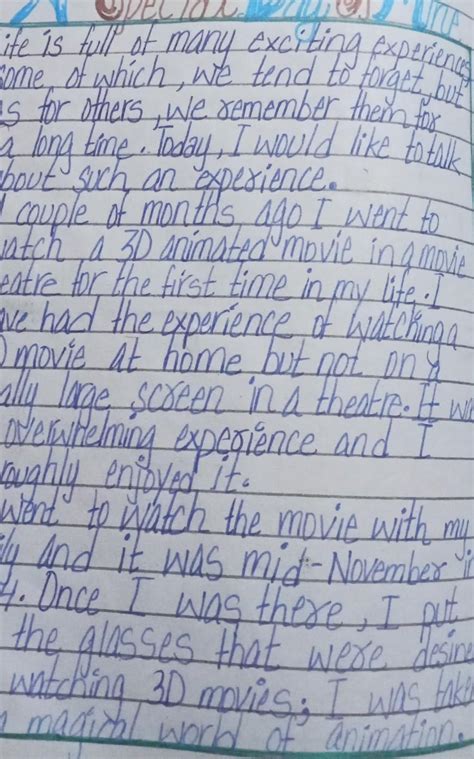 A Special Day of Mine
ife is full of many exciting experience
some of which, we tend to forget, but
as for others, we remember them for
a long time. Today, I would like to talk
bout such an experience.
I couple of months ago I went to
watch a 3D animated movie in a movie
eatre for the first time in my life. I
ave had the experience of watching a
D movie at home but not on a
ally large screen in a theatre. It wa
overwhelming experience and I
roughly enjoyed it.
went to watch the movie with my
ily and it was mid-November i
4. Once I was there, I put
the glasses that were desine
watching 3D movies; I was take
a magical world of animation.